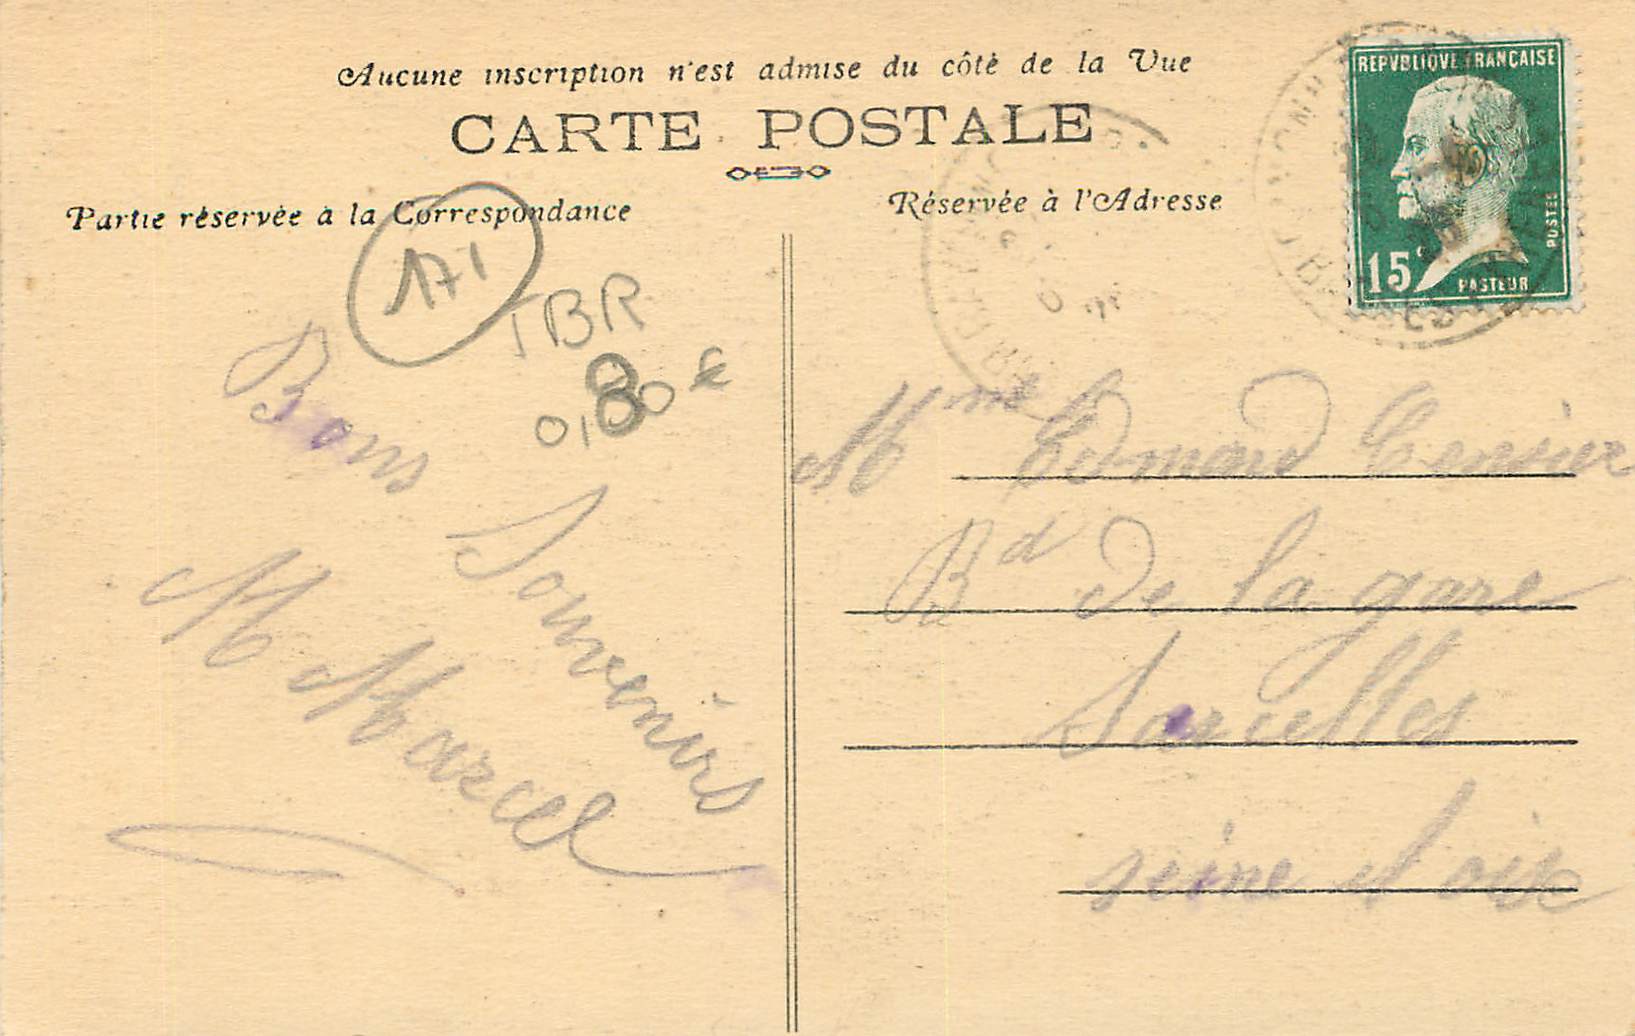 Aucune inscription n'est admise du côté de la Vue
CARTE POSTALE
Partie réservée à la Correspondance
Réservée à l'Adresse
REPVBLIQVE FRANÇAISE
15c
POSTES
PASTEUR
171
TBR
0,80 €
Bons Souvenirs
M Marcel
Mme Edmond
Bd de la gare
Sarcelles
seine et oise